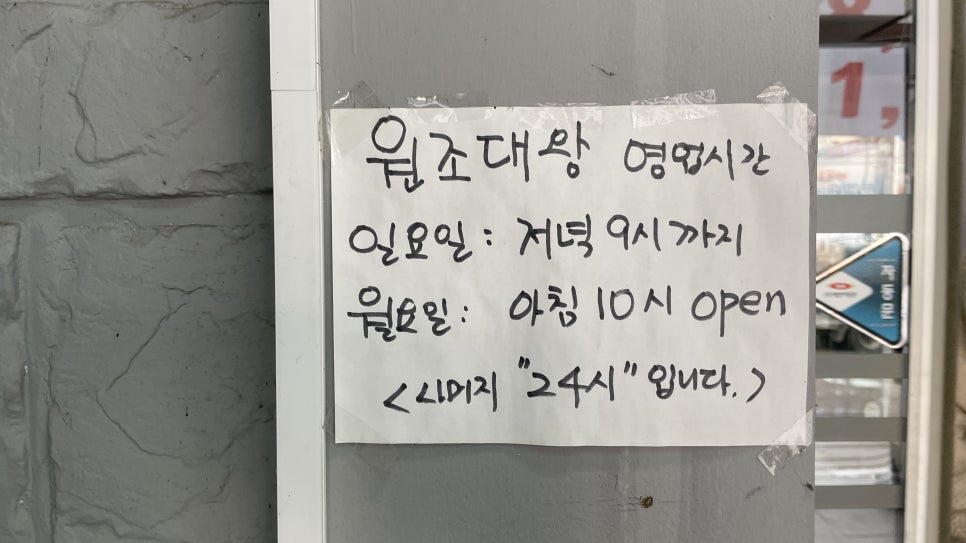 원조대왕 영업시간
일요일: 저녁 9시까지
월요일: 아침 10시 open
<나머지 "24시"입니다.>
1,